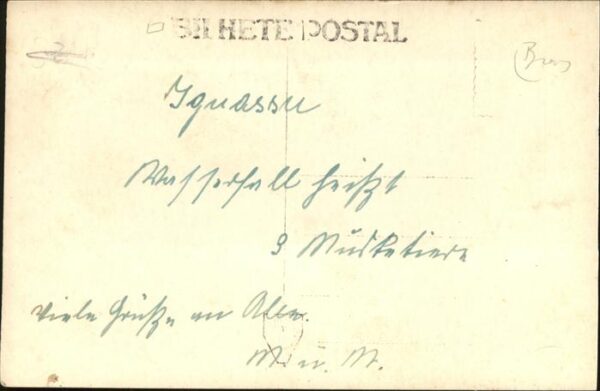 BILHETE POSTAL
Bras
Iguassu
Wasserfall heißt
3 Musketiere
Viele Grüße an Alle.
M. u. M.